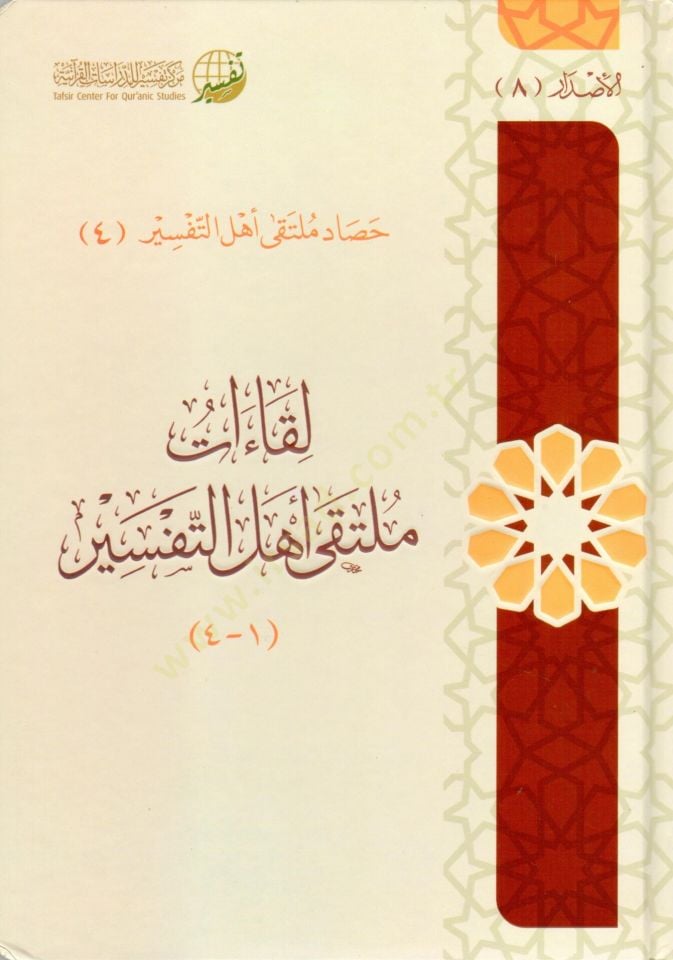 الإصدار (٨)
مركز تفسير للدراسات القرآنية
Tafsir Center For Qur'anic Studies
تفسير
حَصَاد مُلتَقى أهل التَّفْسِير (٤)
لِقَاءَاتُ
مُلتَقى أهل التَّفْسِيْر
(١-٤)